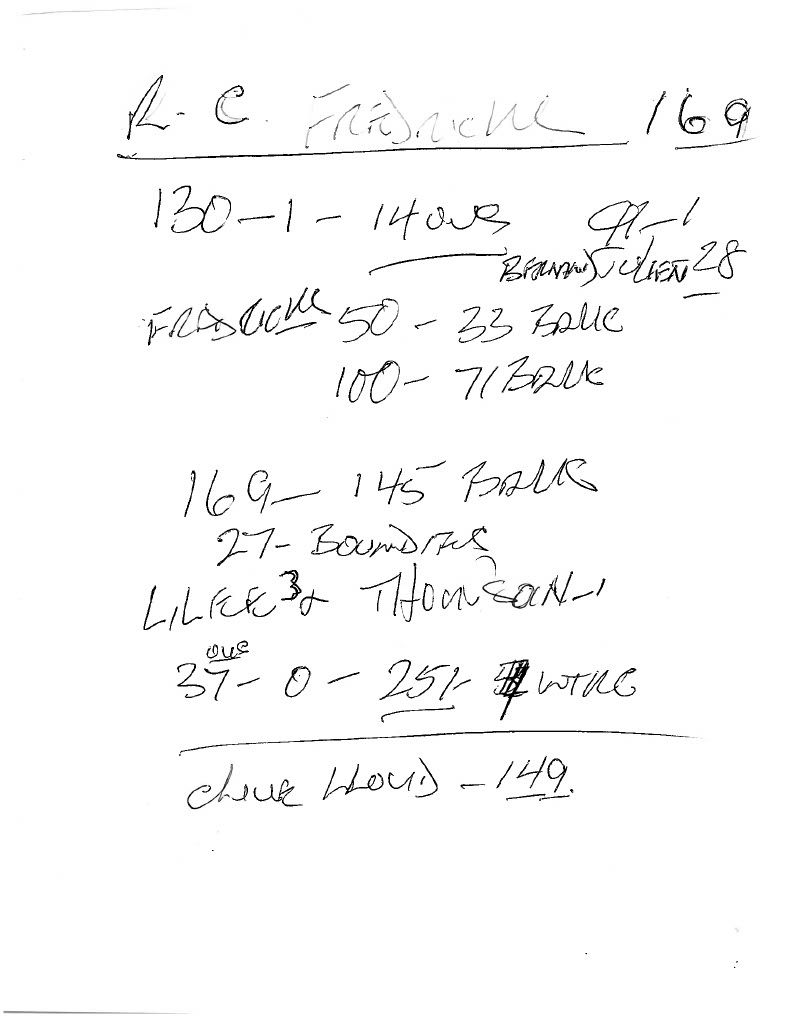 R. C. FREDRICKS 169
130 - 1 - 14 OVS 91 - 1
BERNARD JULIEN 28
FREDRICKS 50 - 33 BALLS
100 - 71 BALLS
169 - 145 BALLS
27 - BOUNDRIES
LILEE 3 & THOMSON - 1
OVS
37 - 0 - 251 - 4 WTKS
CLIVE LLOYD - 149.